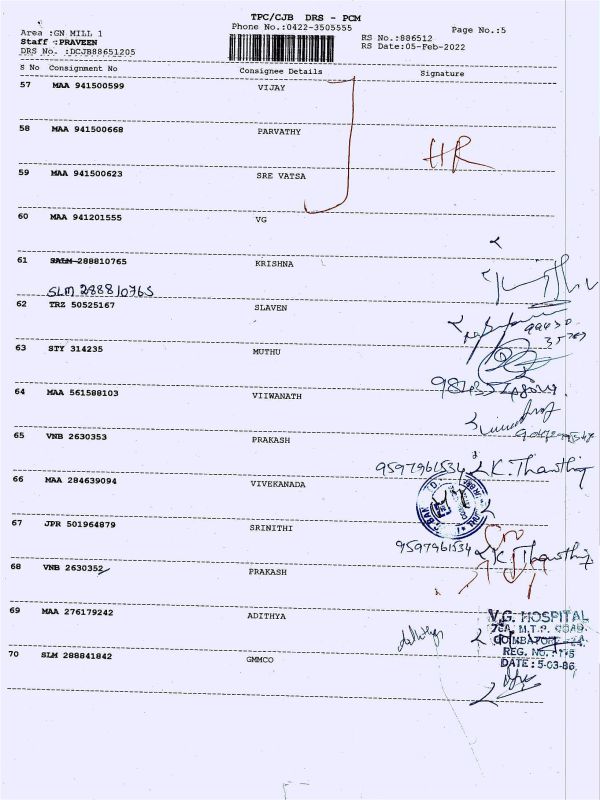 TPC/CJB DRS - PCM
Phone No.:0422-3505555
Page No.:5
Area :GN MILL 1
Staff :PRAVEEN
DRS No. :DCJB88651205
RS No.:886512
RS Date:05-Feb-2022
S No Consignment No Consignee Details Signature
57 MAA 941500599 VIJAY
58 MAA 941500668 PARVATHY
HR
59 MAA 941500623 SRE VATSA
60 MAA 941201555 VG
61 SALM 288810765 KRISHNA
SLM 288810765
62 TRZ 50525167 SLAVEN
63 STY 314235 MUTHU
64 MAA 561588103 VIIWANATH
65 VNB 2630353 PRAKASH
9597961534 K. Thawthing
66 MAA 284639094 VIVEKANADA
67 JPR 501964879 SRINITHI
9597961534 K. Thawthing
68 VNB 2630352 PRAKASH
69 MAA 276179242 ADITHYA
V.G. HOSPITAL
M.T.P. ROAD
COIMBATORE
REG. NO.
DATE : 5-03-86
70 SLM 288841842 GMMCO